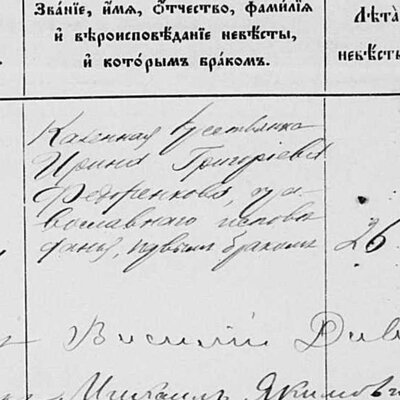 Зва́нїе, и́мѧ, ѻ҆́тчество, фами́лїѧ
и҆ вѣроисповѣ́данїе невѣ́сты,
и҆ кото́рымъ бра́комъ.
Лѣта̀
невѣ́сты
Казенная крестьянка
Ирина Григоріева
Федоренкова, пра-
вославнаго исповѣ
данія, первымъ бракомъ
26
Василій
Михаилъ Якимов